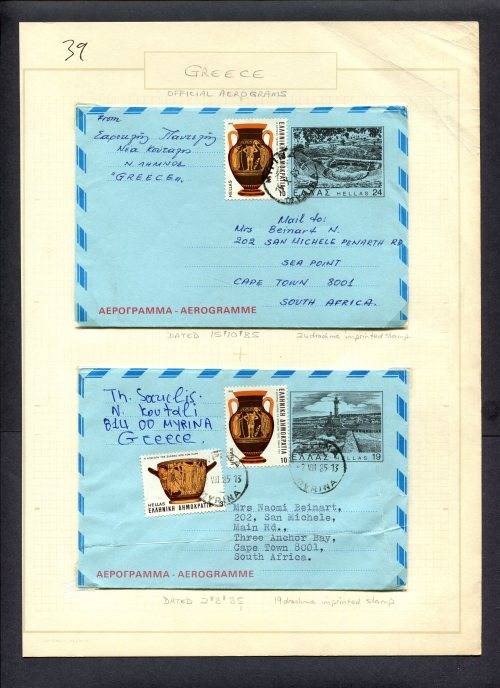 39
GREECE
OFFICIAL AEROGRAMS
From
Σαρικλής Παντελής
Νέα Κούταλη
Ν. ΛΗΜΝΟΣ
"GREECE"
ΕΛΛΗΝΙΚΗ ΔΗΜΟΚΡΑΤΙΑ
HELLAS
10
ΕΛΛΑΣ HELLAS 24
Mail to:
Mrs Beinart N.
202 SAN MICHELE PENARTH RD
SEA POINT
CAPE TOWN 8001
SOUTH AFRICA.
ΑΕΡΟΓΡΑΜΜΑ - AEROGRAMME
DATED 15*10*85
24 drachma imprinted stamp
N. Koutali
81400 MYRINA
Greece.
ΕΛΛΗΝΙΚΗ ΔΗΜΟΚΡΑΤΙΑ
HELLAS
10
ΕΛΛΑΣ HELLAS 19
HELLAS
ΕΛΛΗΝΙΚΗ ΔΗΜΟΚΡΑΤΙΑ
VIII 85 13
MYRINA
2 VIII 85 13
MYRINA
Mrs Naomi Beinart,
202, San Michele,
Main Rd.,
Three Anchor Bay,
Cape Town 8001,
South Africa.
ΑΕΡΟΓΡΑΜΜΑ - AEROGRAMME
DATED 2*8*85
19 drachma imprinted stamp